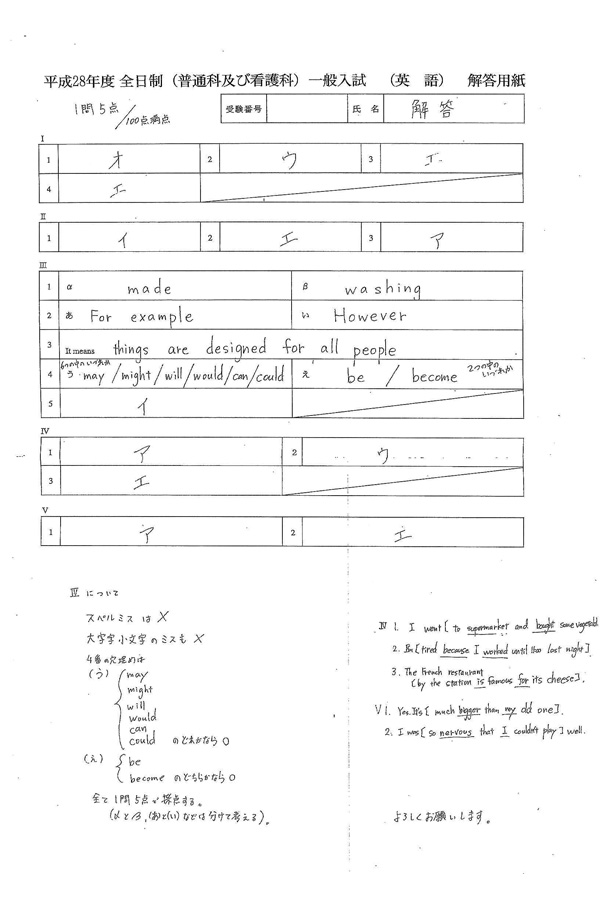 平成28年度 全日制（普通科及び看護科）一般入試 （英 語） 解答用紙
1問5点/100点満点
受験番号 氏 名 解答
I
1 オ 2 ウ 3 エ
4 エ
II
1 イ 2 エ 3 ア
III
1 α made β washing
2 あ For example い However
3 It means things are designed for all people .
4 6つの中のいづれか う may/might/will/would/can/could え be / become 2つの中のいづれか
5 イ
IV
1 ア 2 ウ
3 エ
V
1 ア 2 エ
III について
スペルミス は ×
大文字小文字のミスも ×
4番の穴埋めは
(う) may
might
will
would
can
could のどれかなら○
(え) be
become のどちらかなら○
全て1問5点で採点する。
(αとβ, (あ)と(い)などは分けて考える)。
IV 1. I went [ to supermarket and bought some vegetabl
2. I'm [ tired because I worked until too last night ]
3. The French restaurant
[ by the station is famous for its cheese ].
V 1. Yes. It's [ much bigger than my old one ].
2. I was [ so nervous that I couldn't play ] well.
よろしくお願いします。